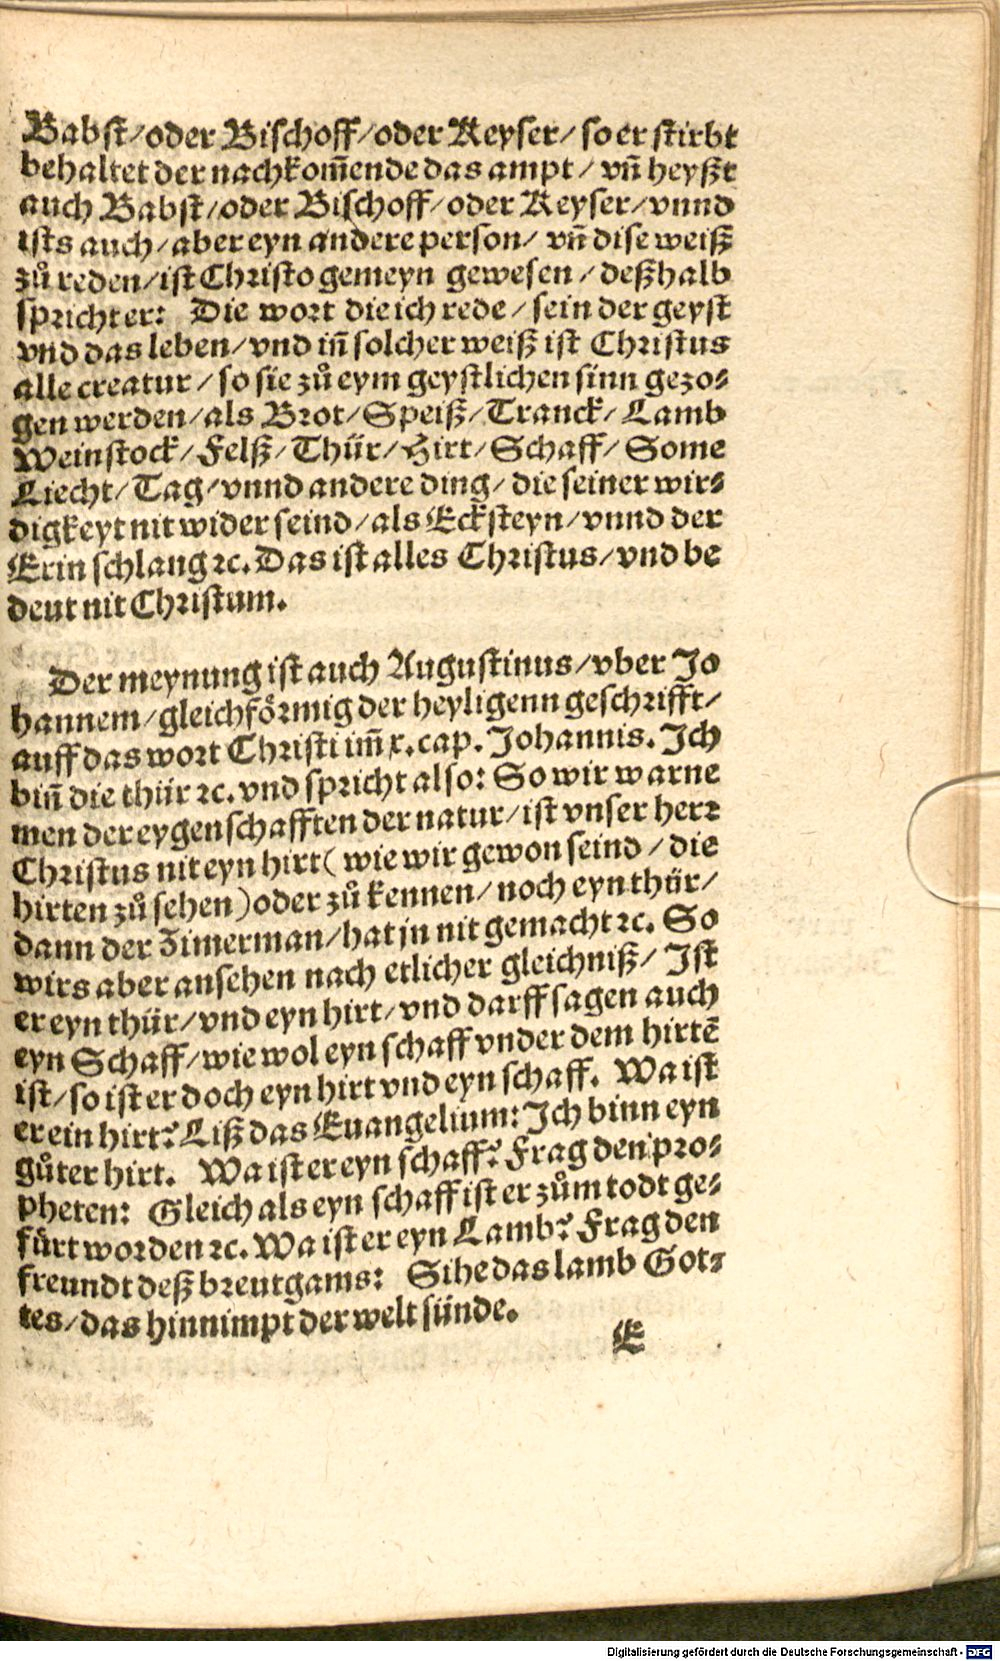 Babst/oder Bischoff/oder Keyser/ so er stirbt
behaltet der nachkom̄ende das ampt/ vn̄ heyßt
auch Babst/oder Bischoff/oder Keyser/vnnd
ists auch/aber eyn andere person/ vn̄ dise weiß
zů reden/ist Christo gemeyn gewesen/deßhalb
spricht er: Die wort die ich rede/sein der geyst
vnd das leben/vnd in̄ solcher weiß ist Christus
alle creatur/so sie zů eym geystlichen sinn gezo⸗
gen werden/als Brot/Speiß/Tranck/Lamb
Weinstock/Felß/Thür/Hirt/Schaff/Some
Liecht/Tag/vnnd andere ding/die seiner wir⸗
digkeyt nit wider seind/als Ecksteyn/vnnd der
Erin schlang ꝛc. Das ist alles Christus/vnd be
deut nit Christum.
Der meynung ist auch Augustinus/vber Jo
hannem/gleichförmig der heyligenn geschrifft/
auff das wort Christi im̄ x. cap. Johannis. Ich
bin̄ die thür ꝛc. vnd spricht also: So wir warne
men der eygenschafften der natur/ist vnser herr
Christus nit eyn hirt( wie wir gewon seind/die
hirten zů sehen)oder zů kennen/noch eyn thür/
dann der Zimerman/hat jn nit gemacht ꝛc. So
wirs aber ansehen nach etlicher gleichniß/ Ist
er eyn thür/vnd eyn hirt/vnd darff sagen auch
eyn Schaff/wie wol eyn schaff vnder dem hirtē
ist/so ist er doch eyn hirt vnd eyn schaff. Wa ist
er ein hirt? Liß das Euangelium: Ich binn eyn
gůter hirt. Wa ist er eyn schaff? Frag den pro⸗
pheten: Gleich als eyn schaff ist er zům todt ge⸗
fürt worden ꝛc. Wa ist er eyn Lamb? Frag den
freundt deß breutgams: Sihe das lamb Got⸗
tes/das hinnimpt der welt sünde.
E
Digitalisierung gefördert durch die Deutsche Forschungsgemeinschaft - DFG